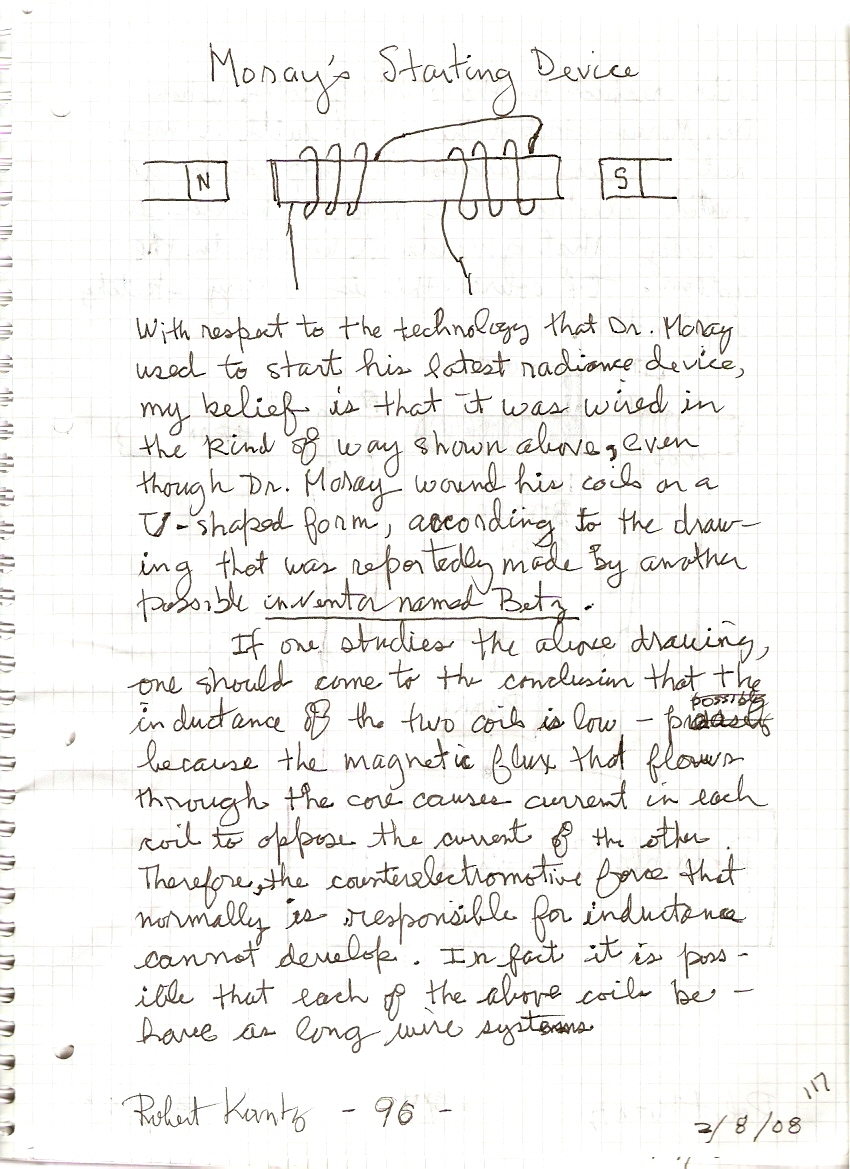 Moray's Starting Device
N S
With respect to the technology that Dr. Moray
used to start his latest radiance device,
my belief is that it was wired in
the kind of way shown above, even
though Dr. Moray wound his coils on a
U-shaped form, according to the draw-
ing that was reportedly made by another
possible inventor named Betz.
If one studies the above drawing,
one should come to the conclusion that the
possibly
inductance of the two coils is low -
because the magnetic flux that flows
through the core causes current in each
coil to oppose the current of the other.
Therefore, the counterelectromotive force that
normally is responsible for inductance
cannot develop. In fact it is poss-
ible that each of the above coils be-
have as long wire systems
117
Robert Kuntz - 96 - 2/8/08